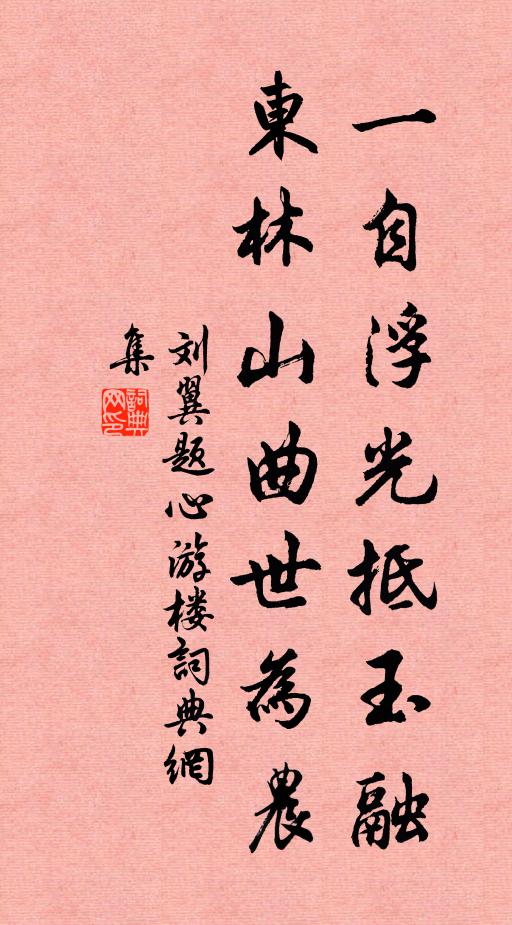 一自浮光抵玉融
東林山曲世為農
刘翼题心游楼詞典網
集
詞典网印